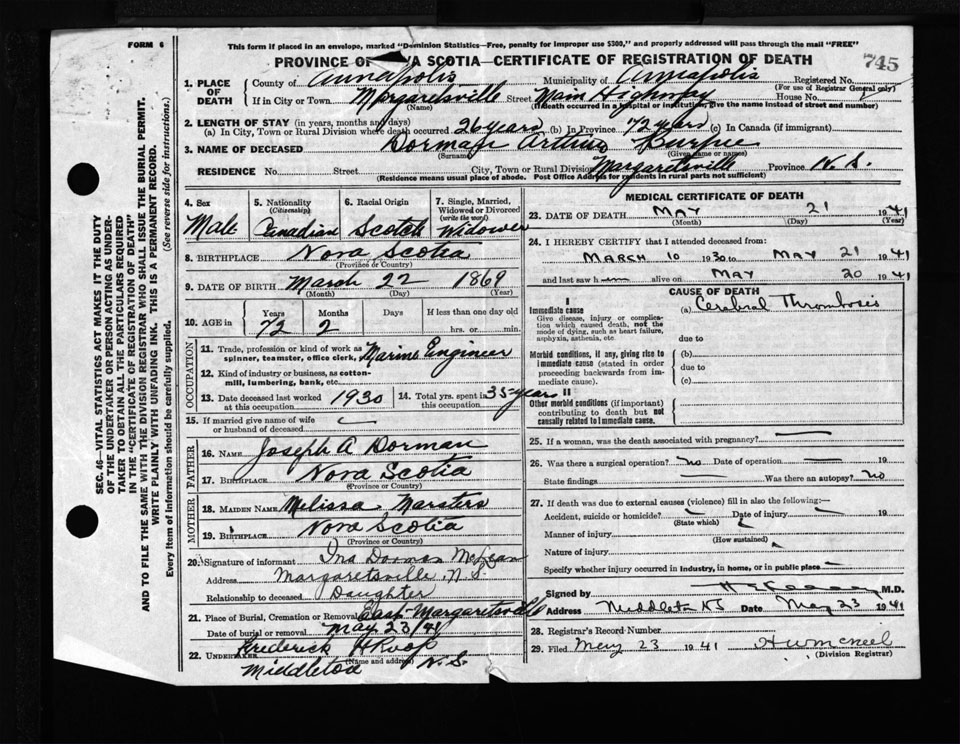 FORM 6
This form if placed in an envelope, marked "Dominion Statistics—Free, penalty for improper use $300," and properly addressed will pass through the mail "FREE"
PROVINCE OF A SCOTIA—CERTIFICATE OF REGISTRATION OF DEATH
745
1. PLACE OF DEATH
County of Annapolis Municipality of Annapolis Registered No.
(For use of Registrar General only)
If in City or Town Margaretsville Street Main Highway House No.
(Name) (Death occurred in a hospital or institution, give the name instead of street and number)
2. LENGTH OF STAY (in years, months and days)
(a) In City, Town or Rural Division where death occurred 26 years (b) In Province 72 years (c) In Canada (if immigrant)
3. NAME OF DECEASED Dorman Arthur Burpee
(Surname) (Given name or names)
RESIDENCE No. Street City, Town or Rural Division Margaretsville Province N.S.
(Residence means usual place of abode. Post Office Address for residents in rural parts not sufficient)
4. Sex Male
5. Nationality (Citizenship) Canadian
6. Racial Origin Scotch
7. Single, Married, Widowed or Divorced (write the word) Widower
8. BIRTHPLACE Nova Scotia
(Province or Country)
9. DATE OF BIRTH March 22 1869
(Month) (Day) (Year)
10. AGE in Years Months Days If less than one day old
72 2 hrs. or min.
OCCUPATION
11. Trade, profession or kind of work as spinner, teamster, office clerk, Marine Engineer
12. Kind of industry or business, as cotton-mill, lumbering, bank, etc.
13. Date deceased last worked at this occupation 1930
14. Total yrs. spent in this occupation 35 years
15. If married give name of wife or husband of deceased
FATHER
16. NAME Joseph A Dorman
17. BIRTHPLACE Nova Scotia
(Province or Country)
MOTHER
18. MAIDEN NAME Melissa Marsters
19. BIRTHPLACE Nova Scotia
(Province or Country)
20. Signature of informant Ina Dorman McLean
Address Margaretsville, N.S.
Relationship to deceased Daughter
21. Place of Burial, Cremation or Removal East Margaretsville
Date of burial or removal May 23/41
22. UNDERTAKER Frederick A Roop
(Name and address)
Middleton N.S.
MEDICAL CERTIFICATE OF DEATH
23. DATE OF DEATH MAY 21 1941
(Month) (Day) (Year)
24. I HEREBY CERTIFY that I attended deceased from:
MARCH 10 1930 to MAY 21 1941
and last saw h alive on MAY 20 1941
CAUSE OF DEATH
I
Immediate cause
Give disease, injury or complication which caused death, not the mode of dying, such as heart failure, asphyxia, asthenia, etc.
(a) Cerebral Thrombosis
due to
Morbid conditions, if any, giving rise to immediate cause (stated in order proceeding backwards from immediate cause).
(b)
due to
(c)
II
Other morbid conditions (if important) contributing to death but not causally related to immediate cause.
25. If a woman, was the death associated with pregnancy?
26. Was there a surgical operation? no Date of operation 19
State findings Was there an autopsy? no
27. If death was due to external causes (violence) fill in also the following:—
Accident, suicide or homicide? Date of injury 19
(State which)
Manner of injury
(How sustained)
Nature of injury
Specify whether injury occurred in industry, in home, or in public place
Signed by M.D.
Address Middleton NS Date May 23 1941
28. Registrar's Record Number
29. Filed May 23 1941 H W McNeel
(Division Registrar)
SEC. 46—VITAL STATISTICS ACT MAKES IT THE DUTY
OF THE UNDERTAKER OR PERSON ACTING AS UNDER-
TAKER TO OBTAIN ALL THE PARTICULARS REQUIRED
IN THE "CERTIFICATE OF REGISTRATION OF DEATH"
AND TO FILE THE SAME WITH THE DIVISION REGISTRAR WHO SHALL ISSUE THE BURIAL PERMIT.
WRITE PLAINLY WITH UNFADING INK. THIS IS A PERMANENT RECORD.
Every item of information should be carefully supplied. (See reverse side for instructions.)